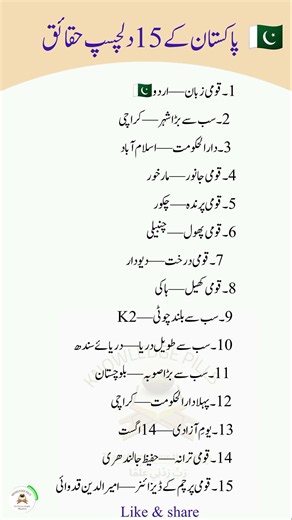 پاکستان کے 15 دلچسپ حقائق 🇵🇰
1۔ قومی زبان — اردو 🇵🇰
2۔ سب سے بڑا شہر — کراچی
3۔ دارالحکومت — اسلام آباد
4۔ قومی جانور — مارخور
5۔ قومی پرندہ — چکور
6۔ قومی پھول — چنبیلی
7۔ قومی درخت — دیودار
8۔ قومی کھیل — ہاکی
9۔ سب سے بلند چوٹی — K2
10۔ سب سے طویل دریا — دریائے سندھ
11۔ سب سے بڑا صوبہ — بلوچستان
12۔ پہلا دارالحکومت — کراچی
13۔ یومِ آزادی — 14 اگست
14۔ قومی ترانہ — حفیظ جالندھری
15۔ قومی پرچم کے ڈیزائنر — امیر الدین قدوائی
Like & share